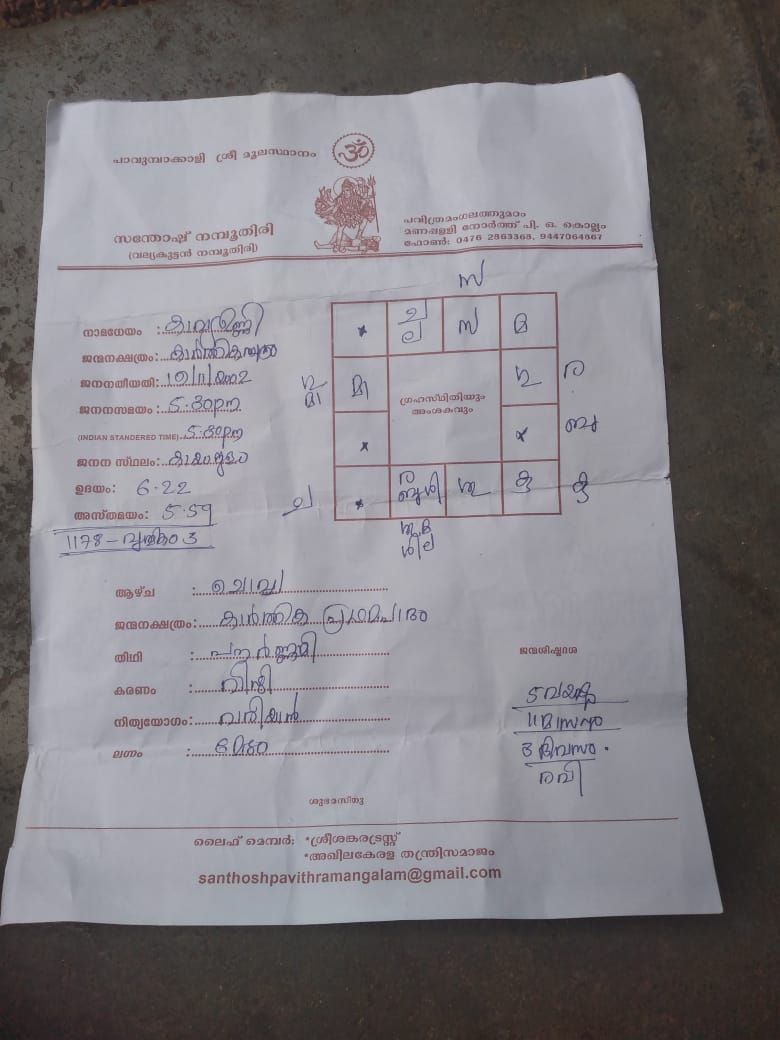 പാവുമ്പാക്കാളി ശ്രീ മൂലസ്ഥാനം
ॐ
സന്തോഷ് നമ്പൂതിരി
(വല്യകുട്ടൻ നമ്പൂതിരി)
പവിത്രമംഗലത്തുമഠം
മണപ്പള്ളി നോർത്ത് പി. ഒ. കൊല്ലം
ഫോൺ: 0476 2863368, 9447064867
നാമധേയം :
ജന്മനക്ഷത്രം:
ജനനതീയതി:
ജനനസമയം: 5.30pm
(INDIAN STANDERED TIME) 5.30pm
ജനന സ്ഥലം:
ഉദയം: 6.22
അസ്തമയം: 5.59
1178 - വൃശ്ചികം 3
സ
x ച ല സ മ
ഗു മാ മാ ഗു ര
ഗ്രഹസ്ഥിതിയും
അംശകവും
x x ബു
ച x ര ബു ശി ശു കു കു
ആഴ്ച : ചൊവ്വ
ജന്മനക്ഷത്രം: കാർത്തിക പ്രഥമപാദം
തിഥി : പൗർണ്ണമി
കരണം : വിഷ്ടി
നിത്യയോഗം: വരിയാൻ
ലഗ്നം : മേടം
ജന്മശിഷ്ടദശ
5 വയസ്സ്
11 മാസം
3 ദിവസം.
രവി
ശുഭമസ്തു
ലൈഫ് മെമ്പർ: *ശ്രീശങ്കരട്രസ്റ്റ്
*അഖിലകേരള തന്ത്രിസമാജം
santhoshpavithramangalam@gmail.com